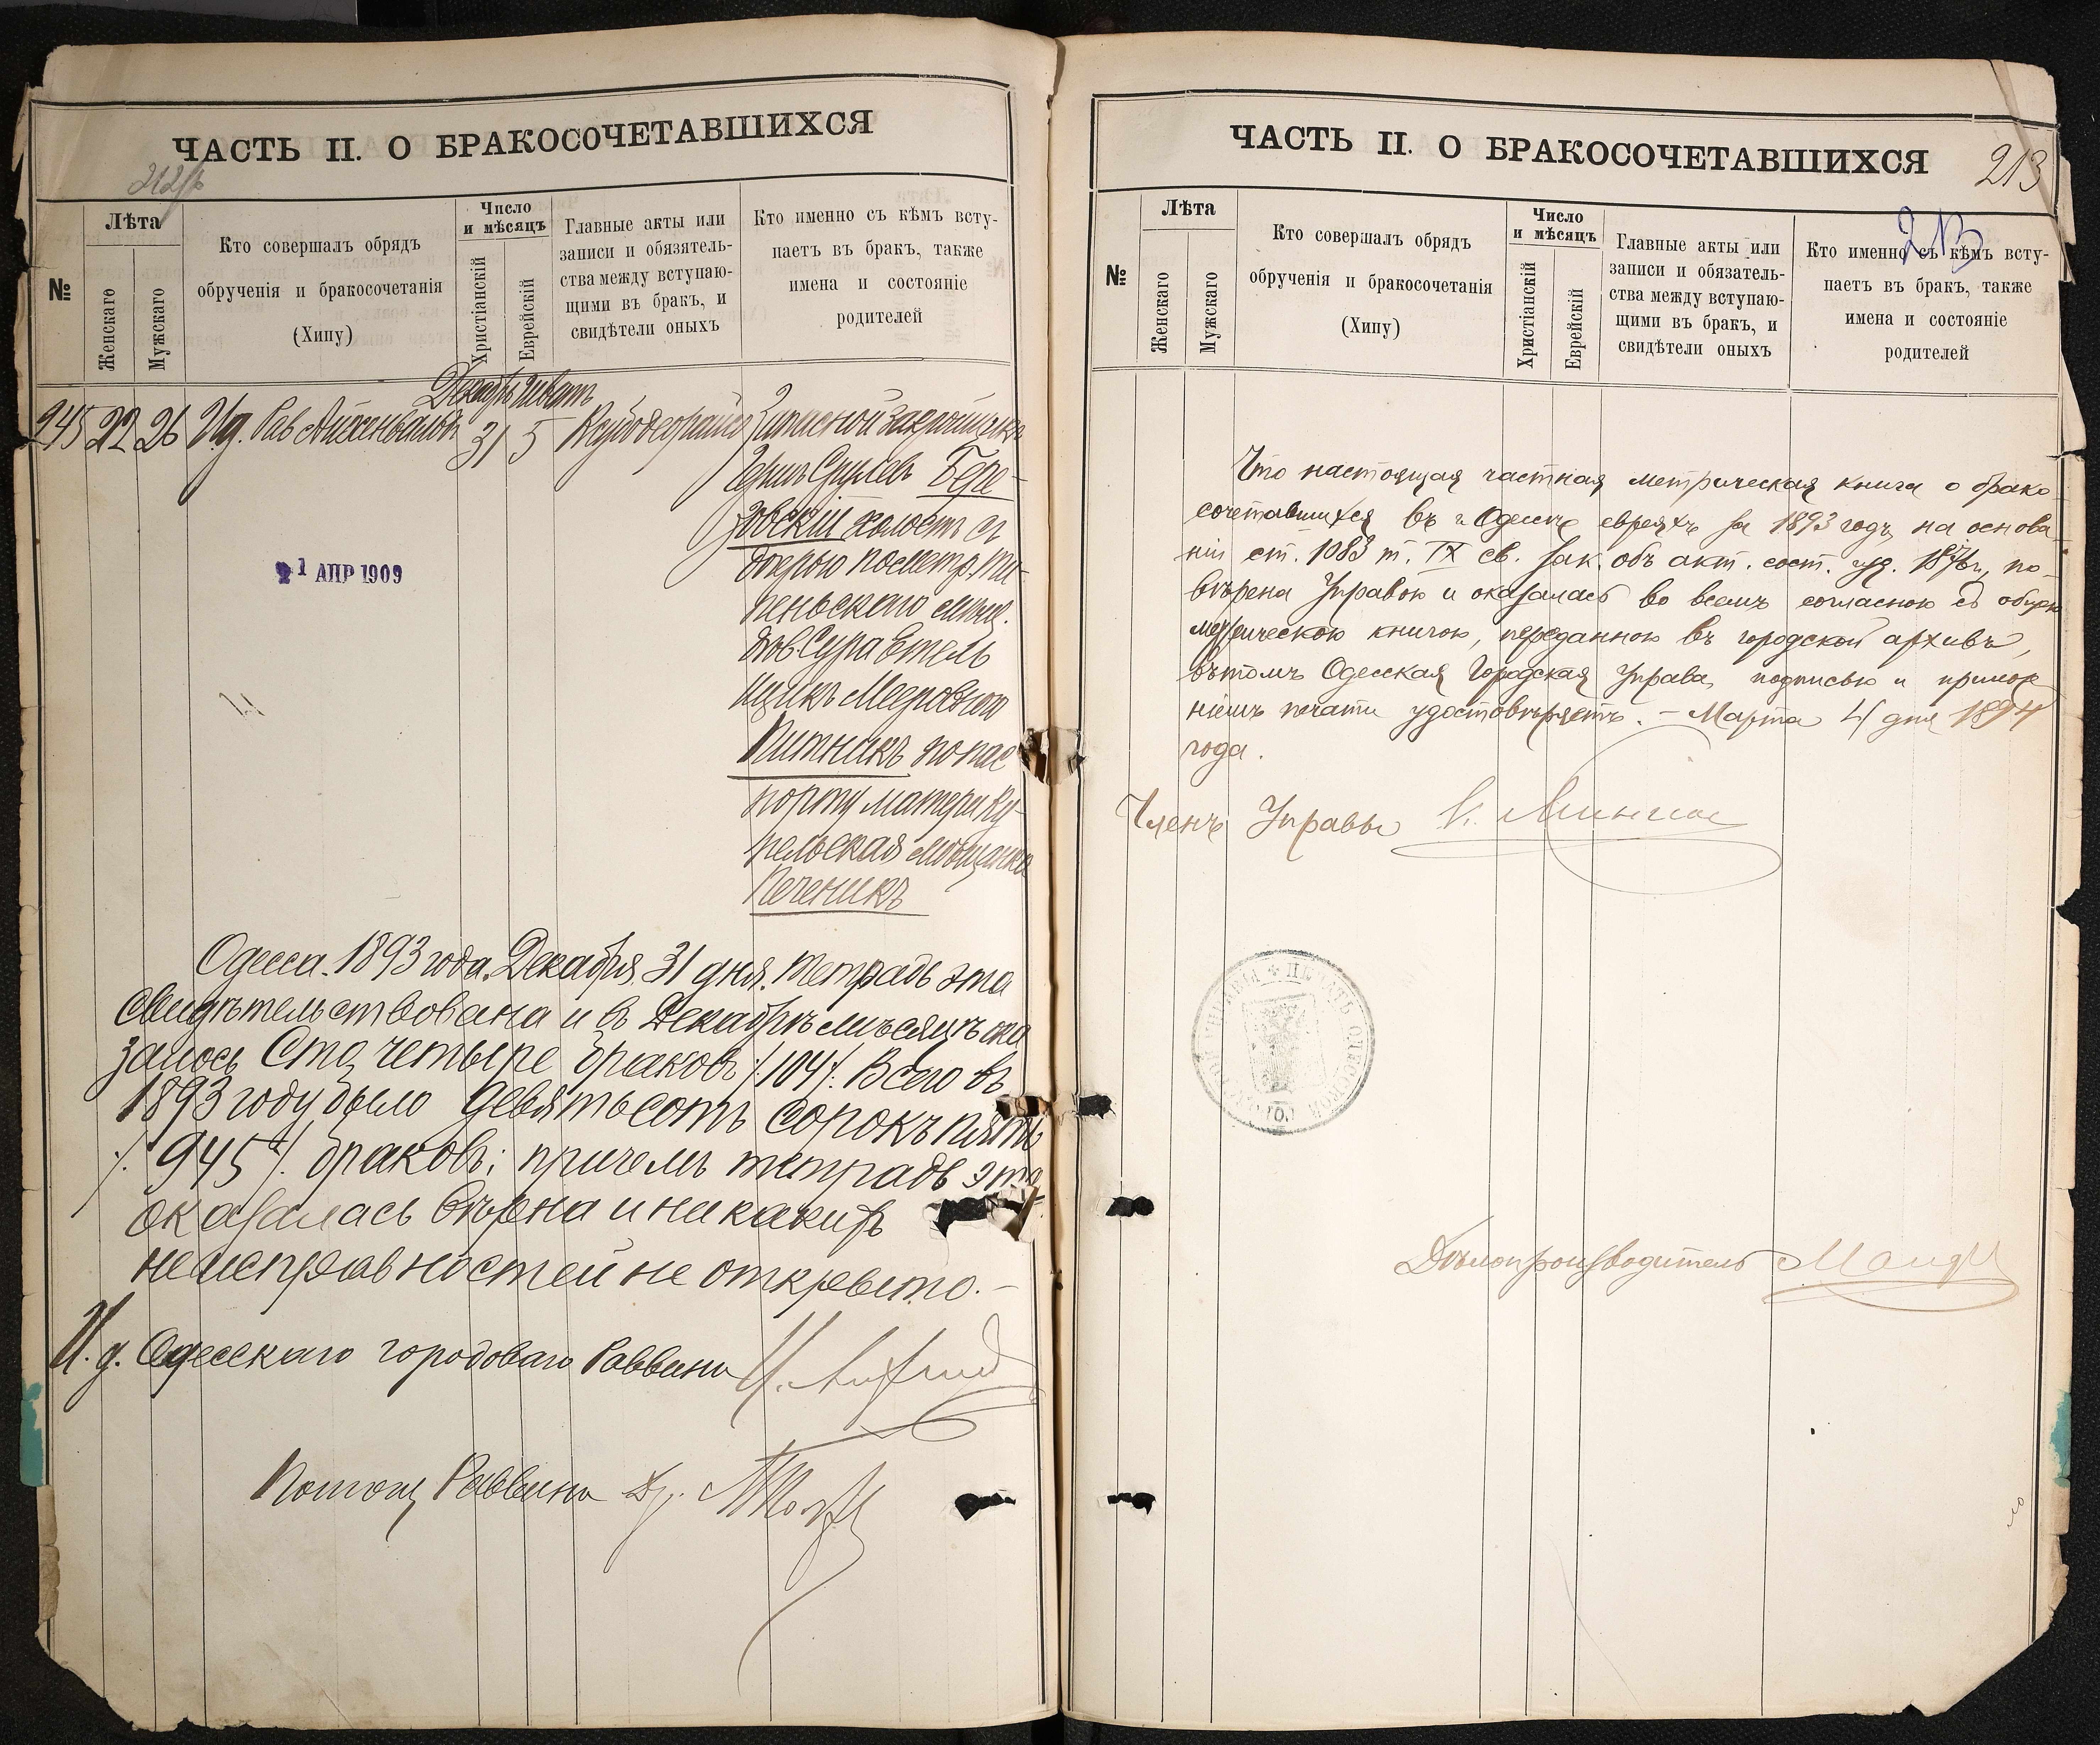 ЧАСТЬ II. О БРАКОСОЧЕТАВШИХСЯ
№
Лѣта
Женскаго
Мужскаго
Кто совершалъ обрядъ
обрученія и бракосочетанія
(Хипу)
Число
и мѣсяцъ
Христіанскій
Еврейскій
Главные акты или
записи и обязатель-
ства между вступаю-
щими въ бракъ, и
свидѣтели оныхъ
Кто именно съ кѣмъ всту-
паетъ въ бракъ, также
имена и состояніе
родителей
Декабрь
945 22 26 И.д. Рав Айхенвальдъ 31 5
Запасной
Сруле​въ Бере-
зовскій холостъ съ
дочерью
Сура Етель
Мееровною
Питникъ по пас
порту матери Ку-
пельская мѣщанка
Печеникъ
21 АПР 1909
Одесса. 1893 года. Декабря 31 дня. Тетрадь эта
свидѣтельствована и въ Декабрѣ мѣсяцѣ ока
залось Сто четыре браковъ /:104:/. Всего въ
1893 году было девятьсотъ сорокъ пять
/:945:/ браковъ; причемъ тетрадь эта
оказалась вѣрна и никакихъ
неисправностей не открыто. -
И. д. Одесскаго городоваго Раввина
Помощ Раввина Др.
ЧАСТЬ II. О БРАКОСОЧЕТАВШИХСЯ
213
213
№
Лѣта
Женскаго
Мужскаго
Кто совершалъ обрядъ
обрученія и бракосочетанія
(Хипу)
Число
и мѣсяцъ
Христіанскій
Еврейскій
Главные акты или
записи и обязатель-
ства между вступаю-
щими въ бракъ, и
свидѣтели оныхъ
Кто именно съ кѣмъ всту-
паетъ въ бракъ, также
имена и состояніе
родителей
Что настоящая частная метрическая книга о брако
сочетавшихся въ г. Одессѣ евреяхъ за 1893 годъ, на основа
ніи ст. 1083 т. IX св. зак. объ акт. сост. изд. 1876 г., по-
вѣрена Управою и оказалась во всемъ согласною съ общею
метрическою книгою, переданною въ городской архивъ,
въ томъ Одесская Городская Управа, подписью и прилож
ніемъ печати удостовѣряетъ. - Марта 4 дня 1894
года.
Членъ Управы
Дѣлопроизводитель